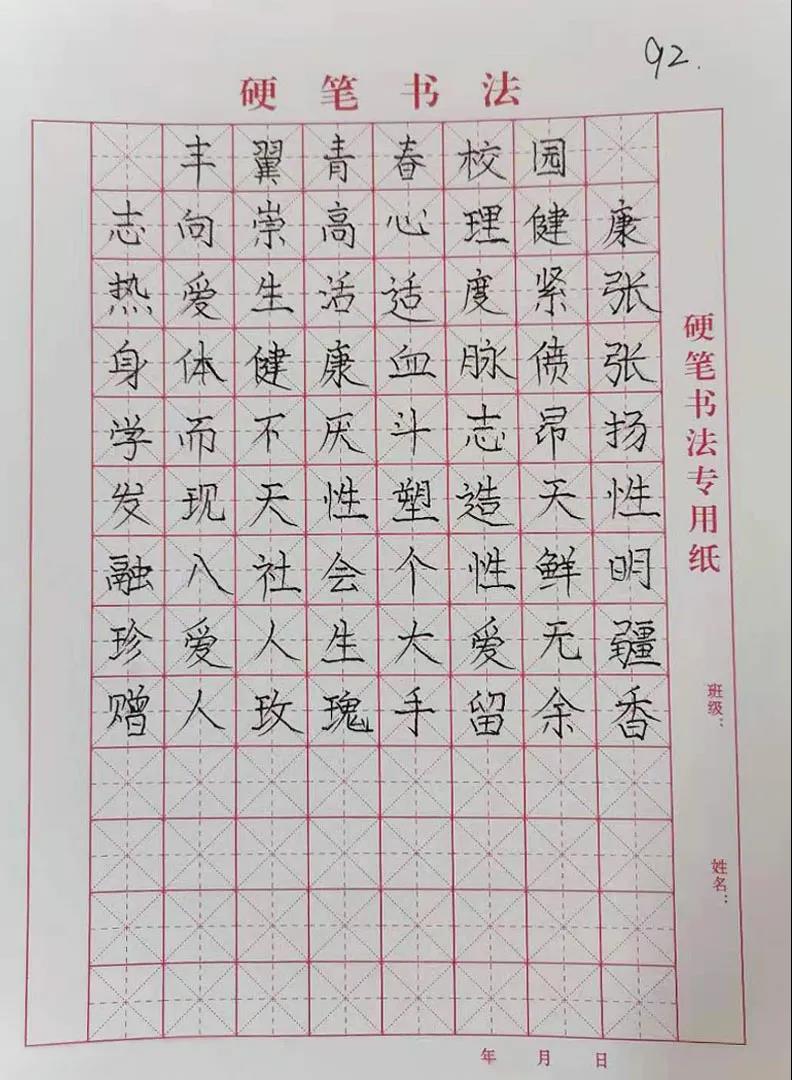 92.
硬笔书法
丰翼青春校园
志向崇高心理健康
热爱生活适度紧张
身体健康血脉偾张
学而不厌斗志昂扬
发现天性塑造天性
融入社会个性鲜明
珍爱人生大爱无疆
赠人玫瑰手留余香
硬笔书法专用纸
班级：
姓名：
年 月 日